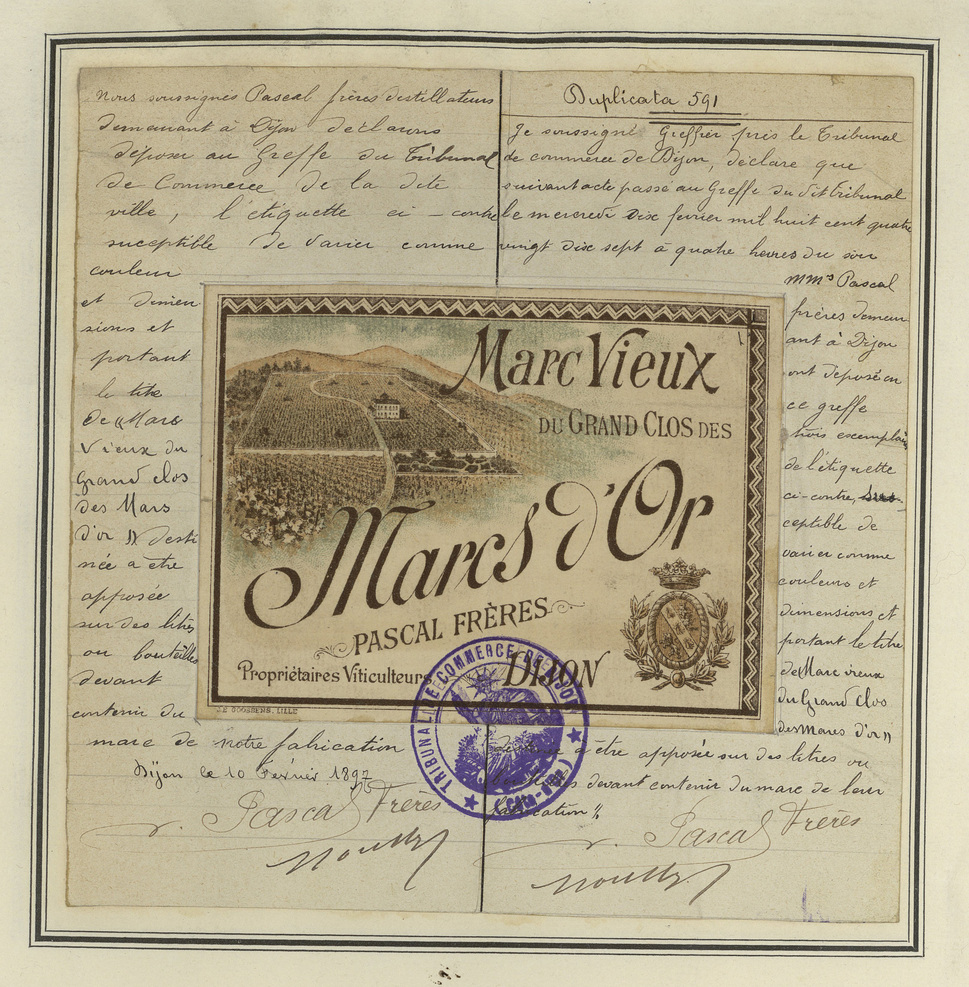 Nous soussignés Pascal frères distillateurs
demeurant à Dijon déclarons
déposer au Greffe du Tribunal
de Commerce de la dite
ville, l'étiquette ci-contre
suceptible de varier comme
couleur
et dimen
sions et
portant
le titre
de « Marc
Vieux du
Grand clos
des Marcs
d'or » desti
née a être
apposée
sur des litres
ou bouteilles
devant
contenir du
marc de notre fabrication
Dijon le 10 Février 1897
Pascal Frères
Duplicata 591
Je soussigné Greffier près le Tribunal
de commerce de Dijon, déclare que
suivant acte passé au Greffe du dit tribunal
le mercredi dix février mil huit cent quatre
vingt dix sept à quatre heures du soir
MMrs Pascal
frères demeur
ant à Dijon
ont déposé en
ce greffe
trois exemplaires
de l'étiquette
ci-contre, sus
ceptible de
varier comme
couleurs et
dimensions et
portant le titre
de Marc vieux
du Grand Clos
des Marcs d'or »
à être apposée sur des litres ou
devant contenir du marc de leur
fabrication "
Pascal Frères
Marc Vieux
DU GRAND CLOS DES
Marcs d'Or
PASCAL FRÈRES
Propriétaires Viticulteurs
DIJON
J.E. GOOSSENS, LILLE
TRIBUNAL DE COMMERCE DE DIJON
(Côte-d'Or)